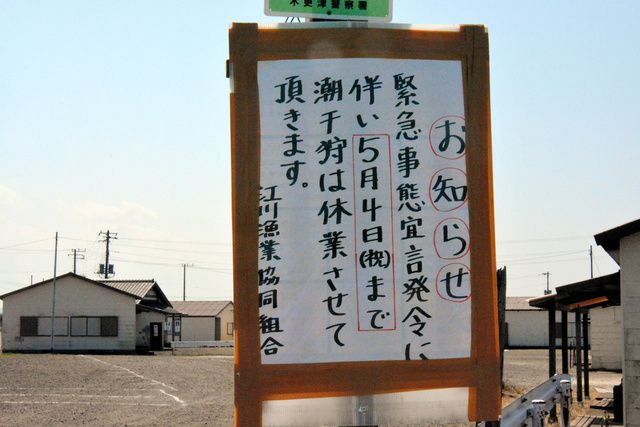 木更津警察署
お知らせ
緊急事態宣言発令に
伴い5月4日(祝)まで
潮干狩は休業させて
頂きます。
江川漁業協同組合